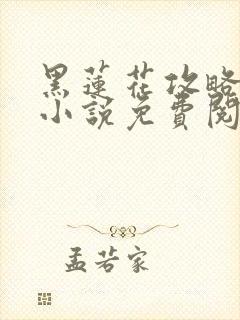 黑蓮花攻略
小說免費閱
孟若家